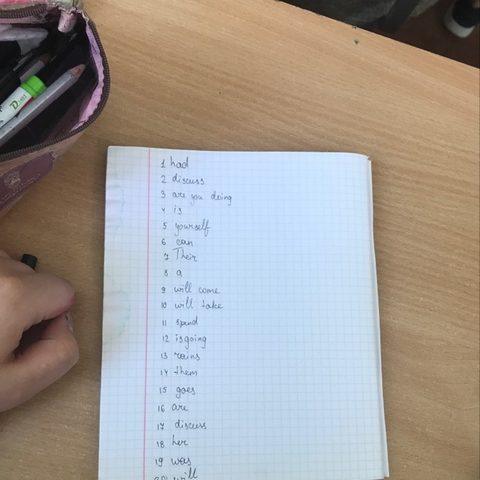 1 had
2 discuss
3 are you doing
4 is
5 yourself
6 can
7 Their
8 a
9 will come
10 will take
11 spend
12 is going
13 rains
14 them
15 goes
16 are
17 discuss
18 her
19 was
20 will